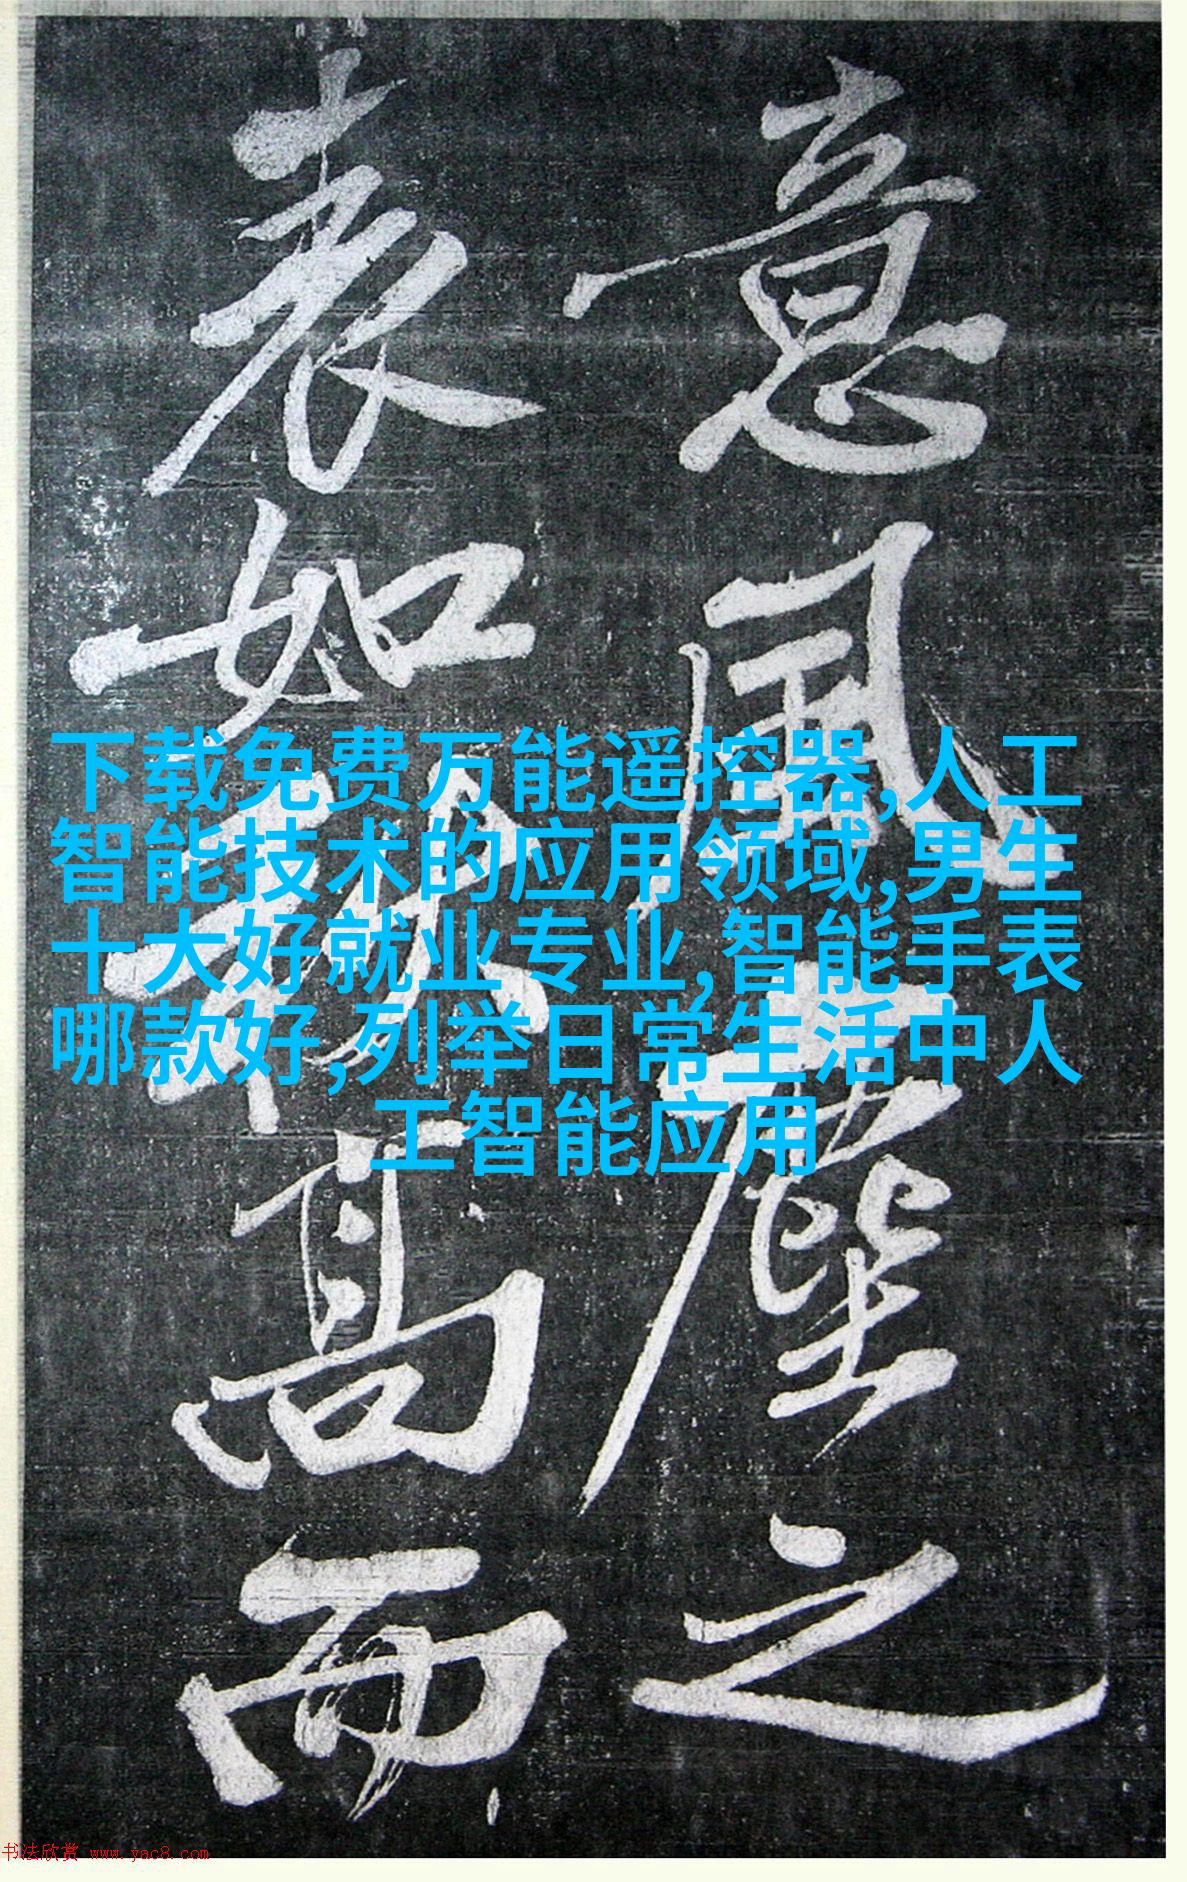 意風塵之
表如秋高而
下载免费万能遥控器,人工
智能技术的应用领域,男生
十大好就业专业,智能手表
哪款好,列举日常生活中人
工智能应用
书法欣赏 www.yac8.com